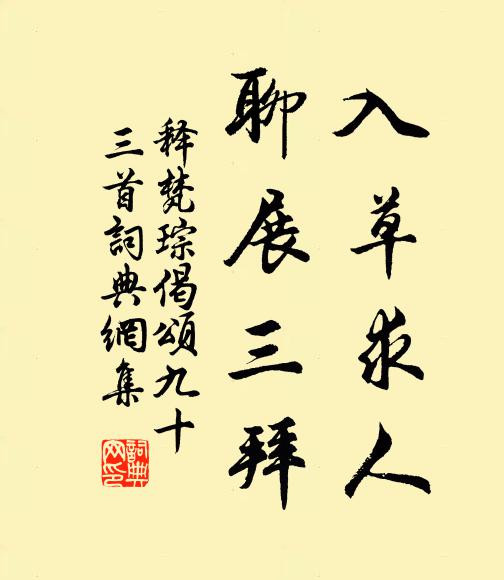 入草求人
聊展三拜
释梵琮偈頌九十
三首詞典網集
詞典
网印